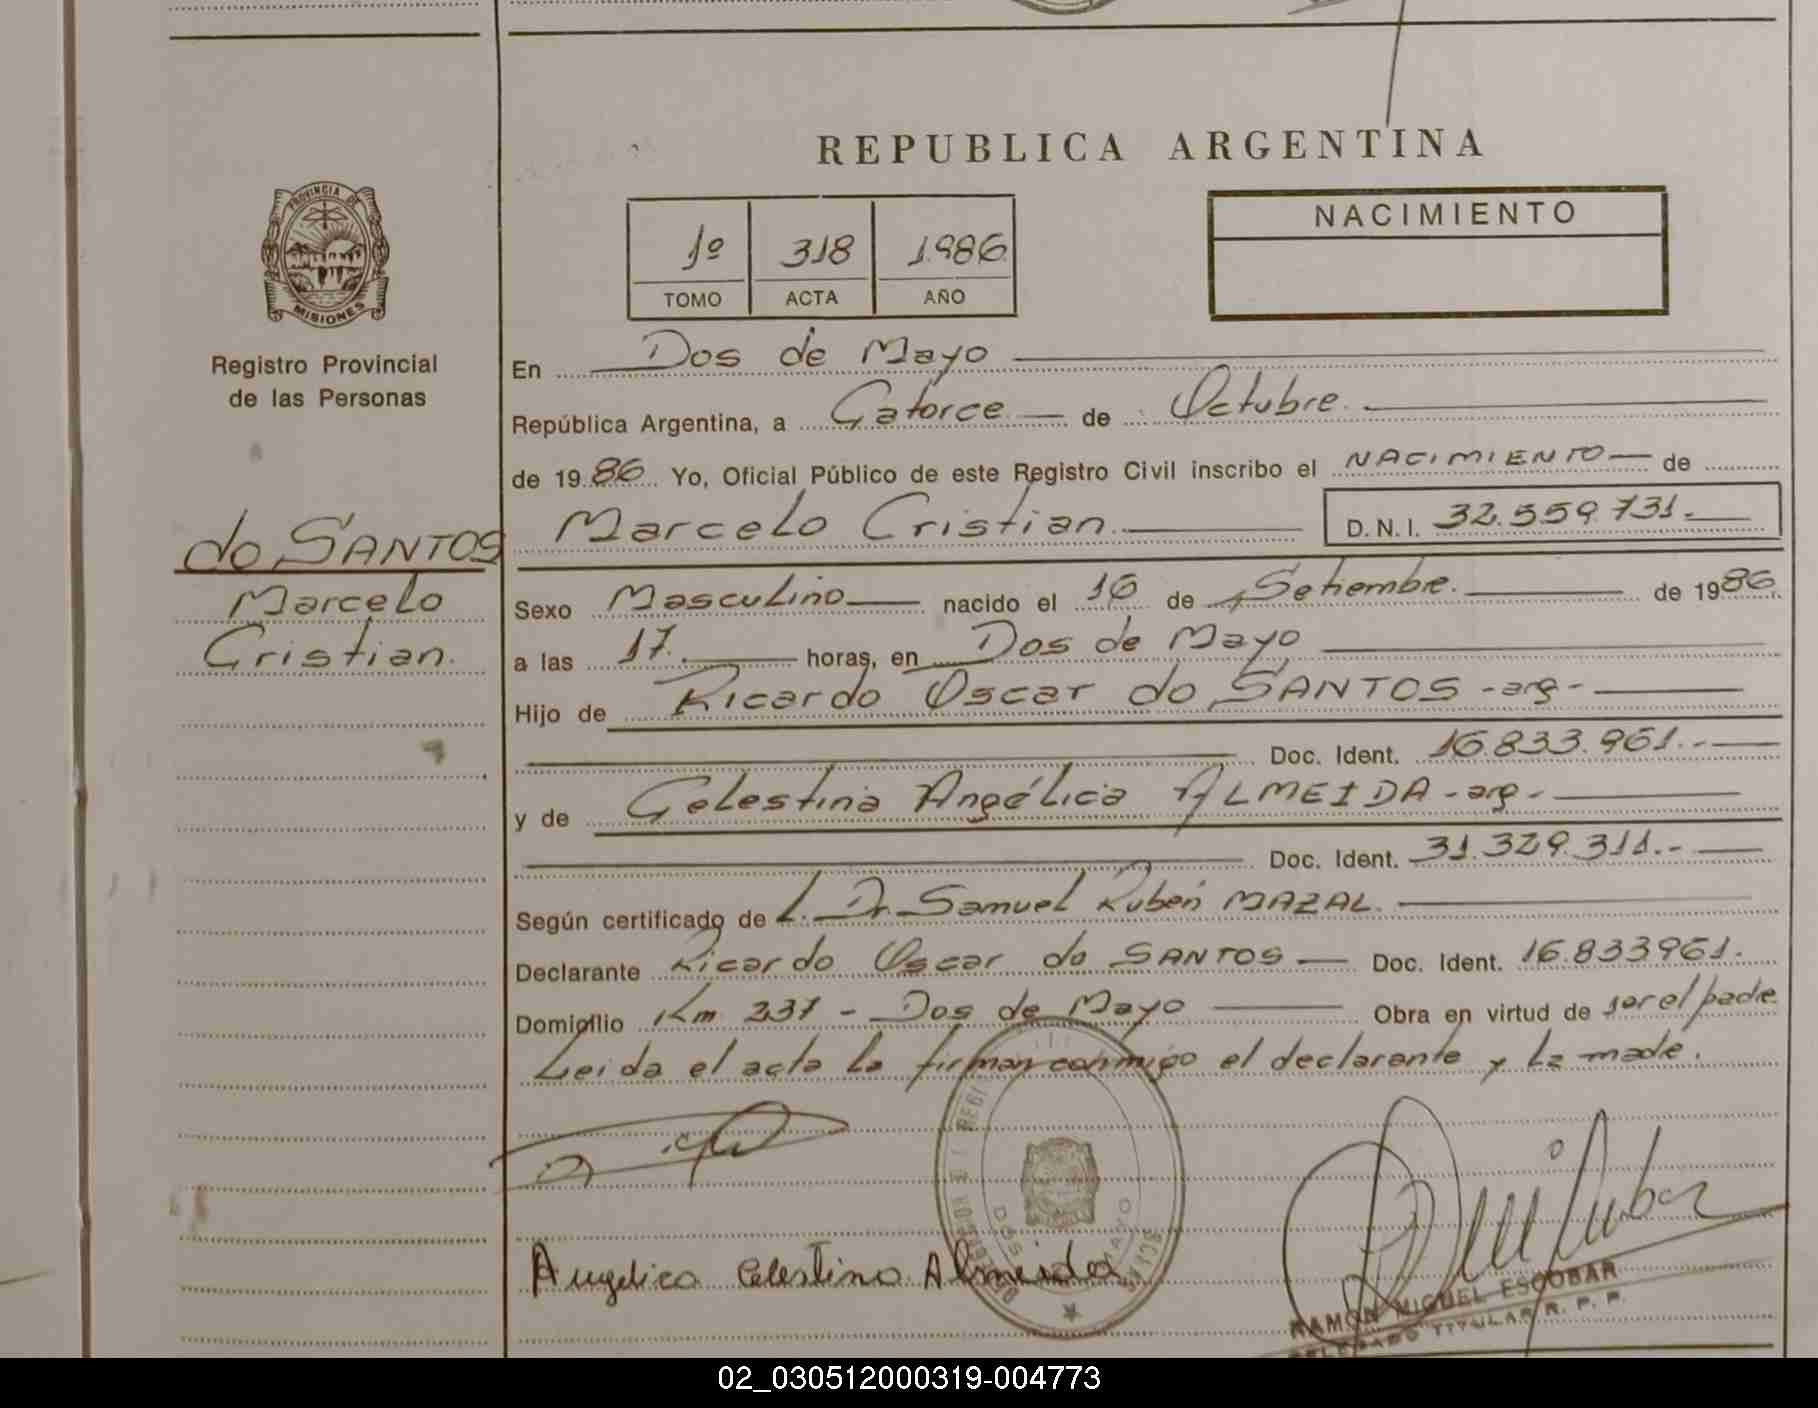 REPUBLICA ARGENTINA
PROVINCIA DE
MISIONES
Registro Provincial
de las Personas
1º 318 1986
TOMO ACTA AÑO
NACIMIENTO
En Dos de Mayo
República Argentina, a Catorce de Octubre.
de 1986 Yo, Oficial Público de este Registro Civil inscribo el NACIMIENTO de
do SANTOS
Marcelo
Cristian.
Marcelo Cristian. D.N.I. 32.559.731.
Sexo Masculino nacido el 16 de Setiembre. de 1986,
a las 17. horas, en Dos de Mayo
Hijo de Ricardo Oscar do SANTOS -arg-
Doc. Ident. 16.833.961.-
y de Celestina Angélica ALMEIDA -arg-
Doc. Ident. 31.329.311.-
Según certificado de L. Dr. Samuel Rubén MAZAL.
Declarante Ricardo Oscar do SANTOS Doc. Ident. 16.833961.
Domicilio Km 237 - Dos de Mayo Obra en virtud de ser el padre
Leida el acta la firman conmigo el declarante y la madre.
DOS MAYO
Angelica Celestina Almeida
RAMON MIGUEL ESCOBAR
DELEGADO TITULAR R. P. P.
02_030512000319-004773